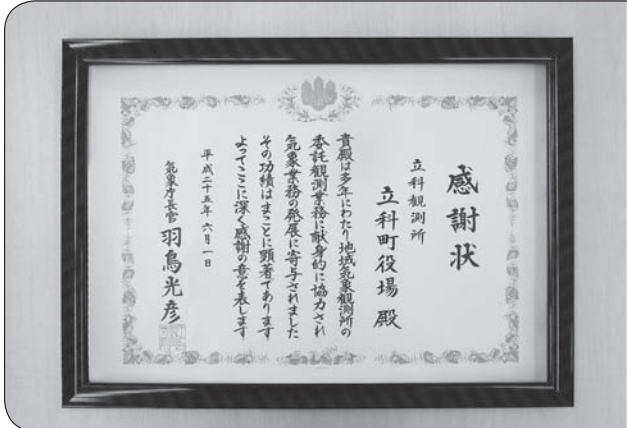 感謝状
立科観測所
立科町役場 殿
貴殿は多年にわたり地域気象観測所の
委託観測業務に献身的に協力され
気象業務の発展に寄与されました
その功績はまことに顕著であります
よってここに深く感謝の意を表します
平成二十五年六月一日
気象庁長官 羽鳥光彦